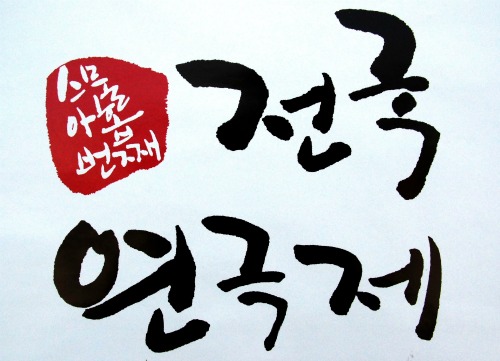 스물
아홉
번째
전국
연극제